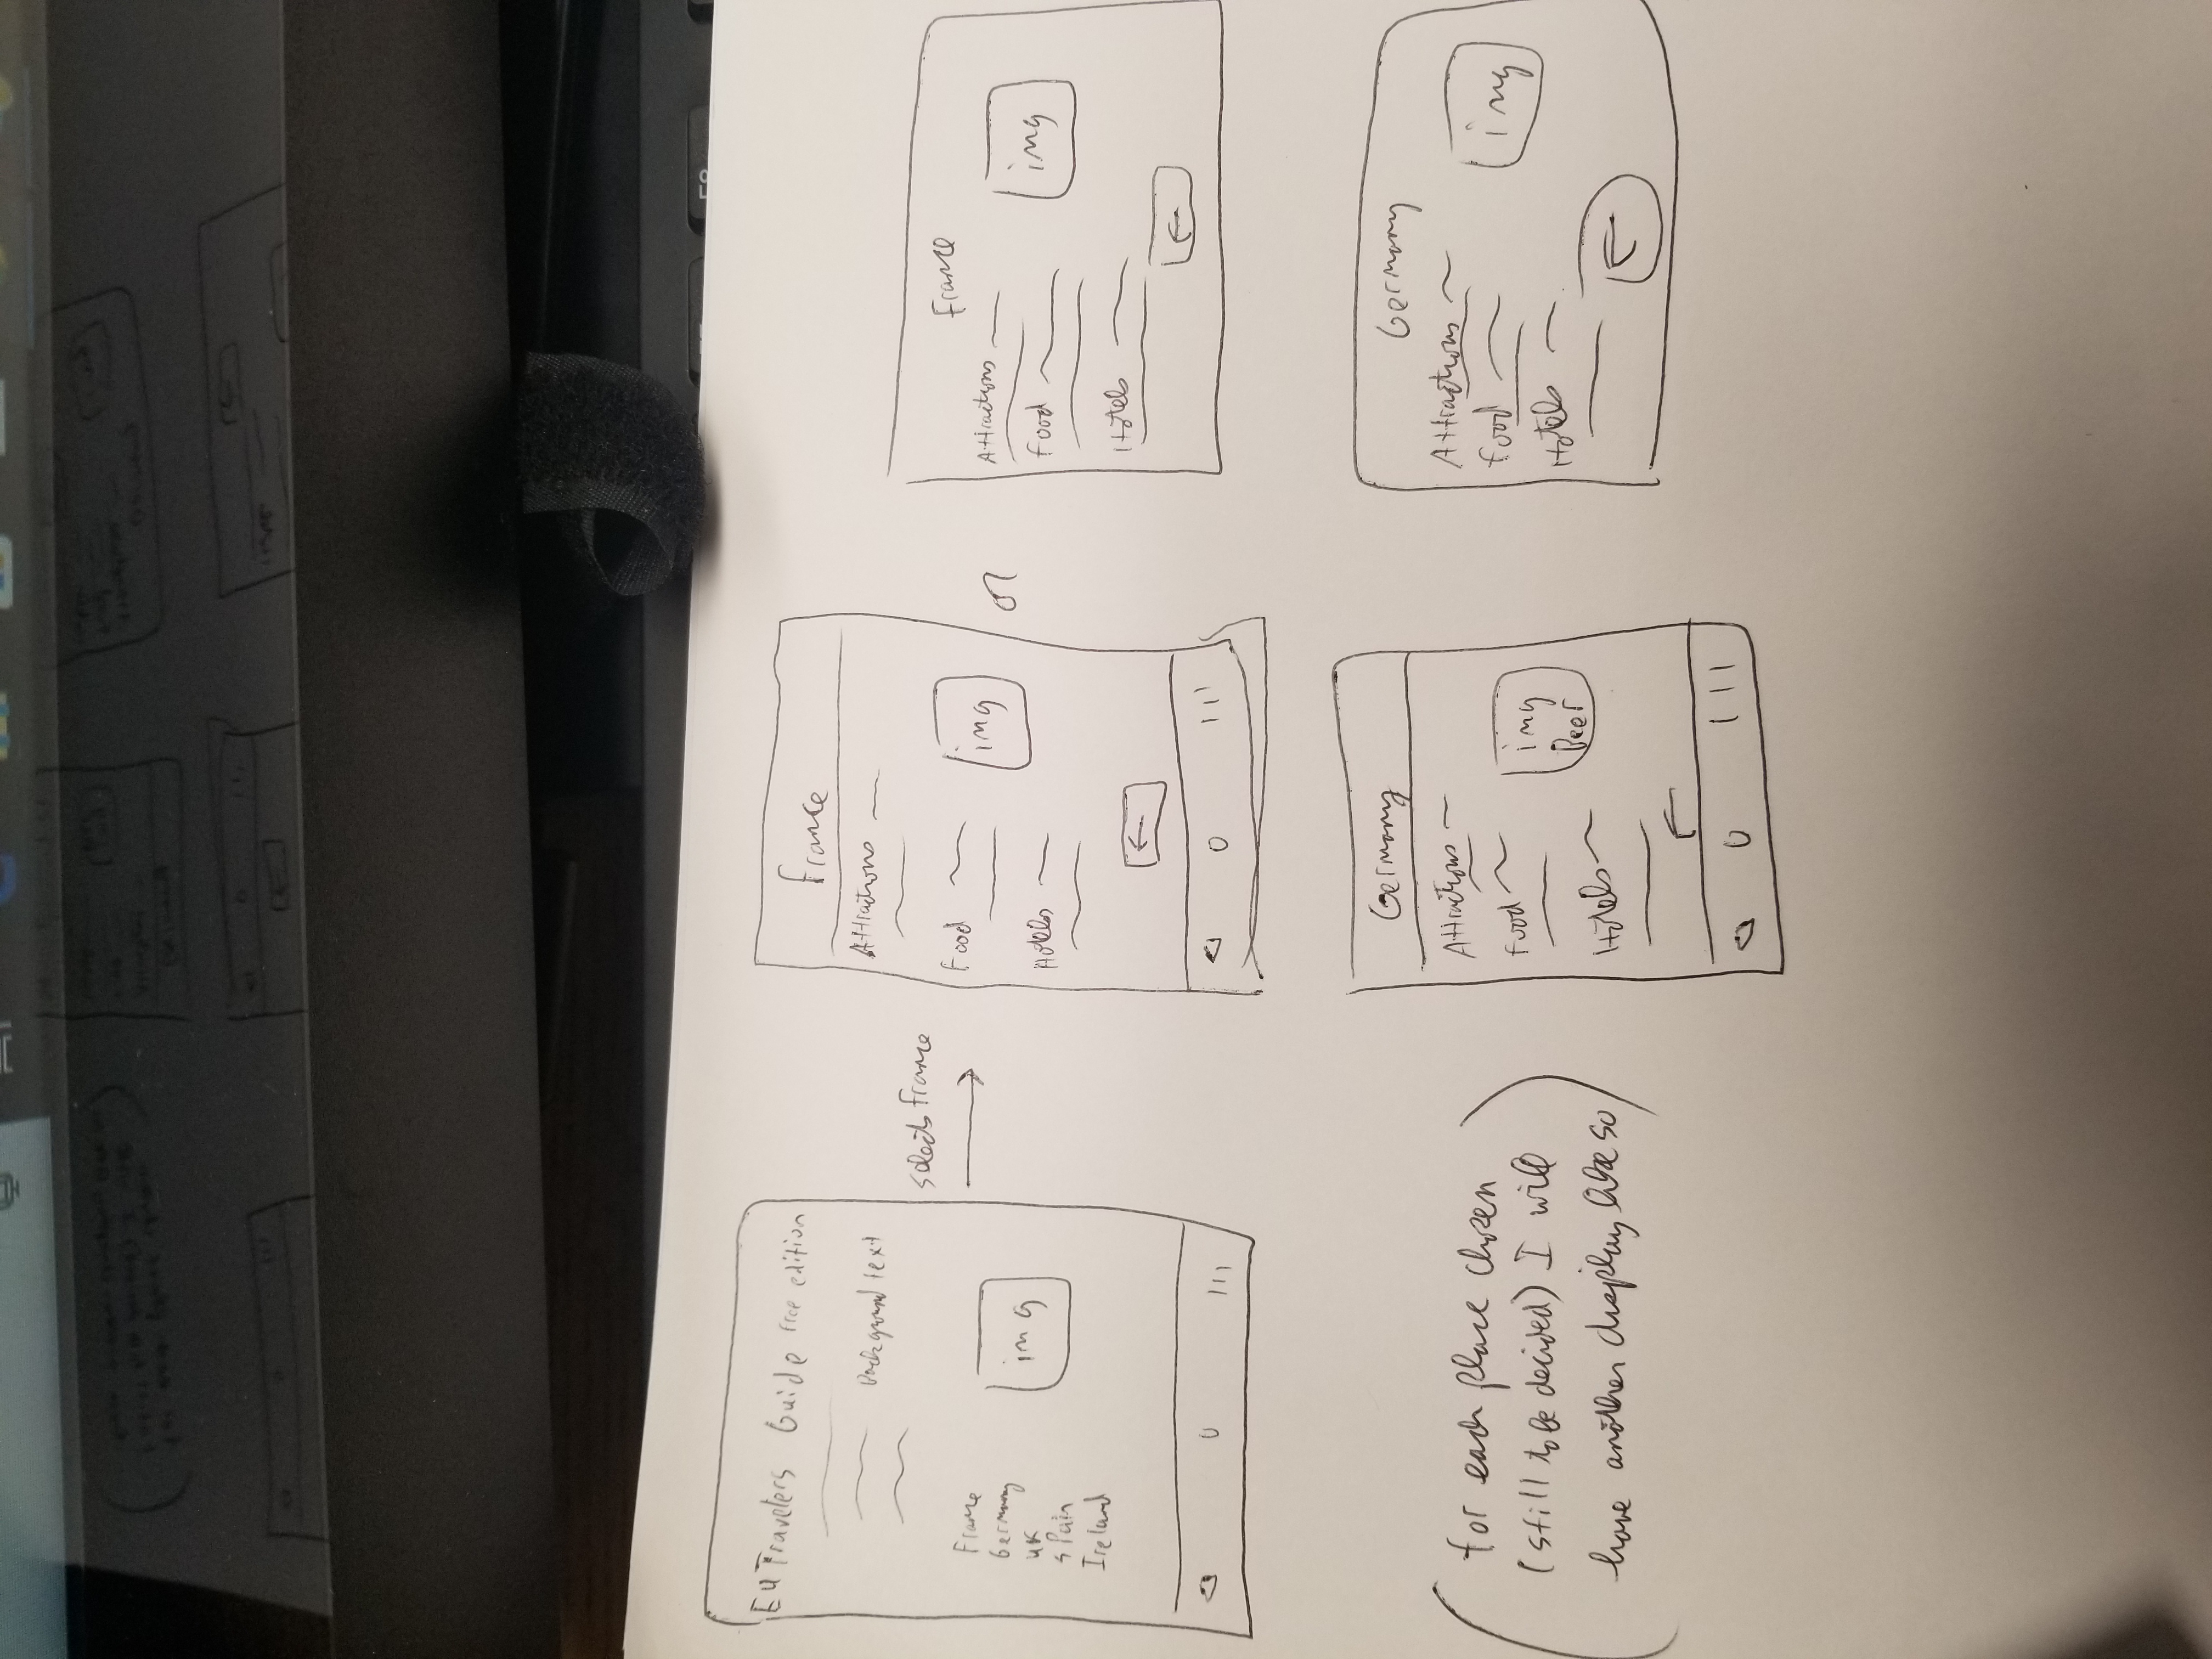 EU Travelers Guide free edition
Background text
France
Germany
UK
Spain
Ireland
img
selects France
France
Attractions
Food
img
Hotels
←
or
France
Attractions
img
Food
Hotels
←
(for each place chosen
(still to be decided) I will
have another display like so)
Germany
Attractions
Food
img
Beer
Hotels
←
Germany
Attractions
Food
img
Hotels
←